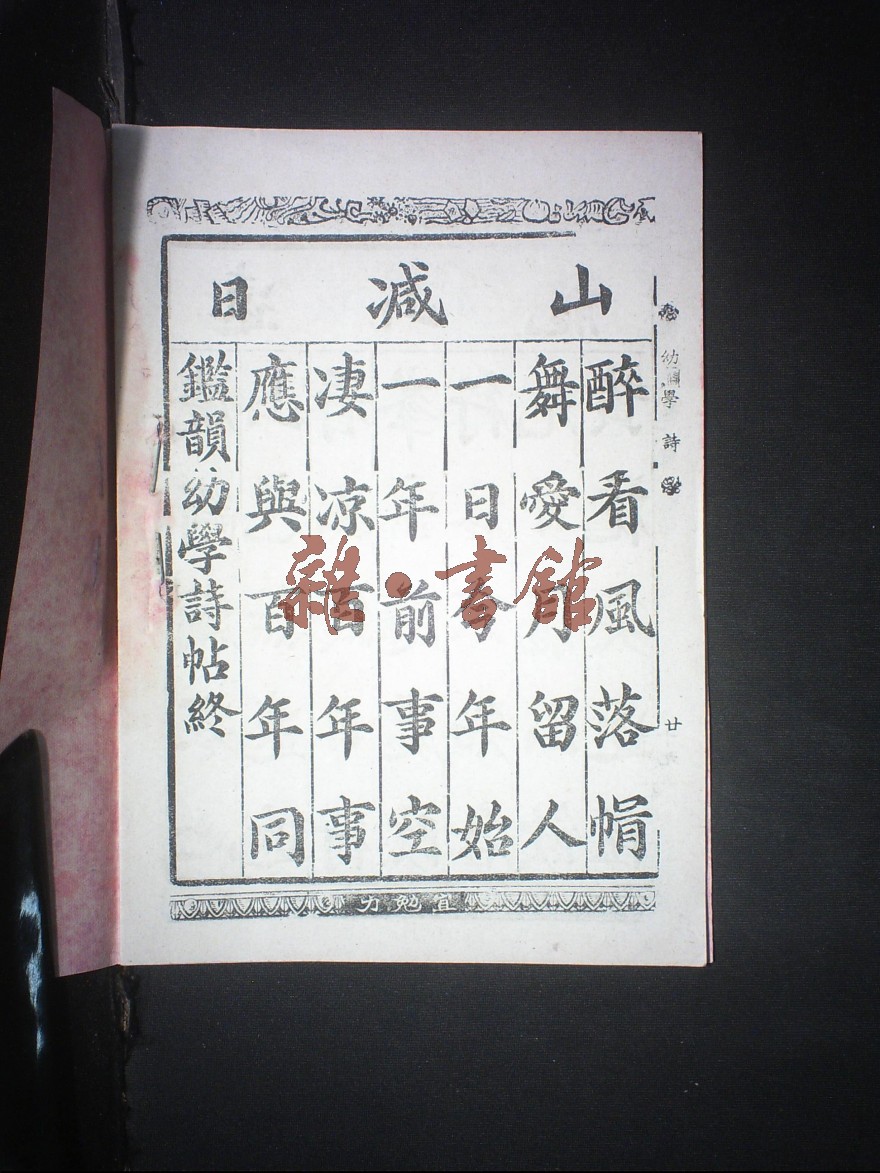 幼學詩
廿
山 减 日
醉看風落帽
舞愛月留人
一日今年始
一年前事空
凄凉百年事
應與百年同
鑑韻幼學詩帖終
宜勉力
雜·書館